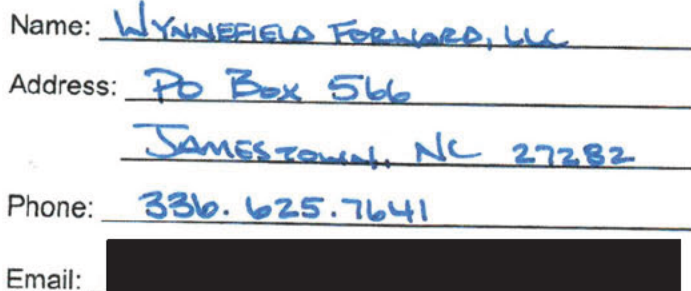 Name: WYNNEFIELD FORWARD, LLC
Address: PO Box 566
JAMESTOWN, NC 27282
Phone: 336.625.7641
Email: